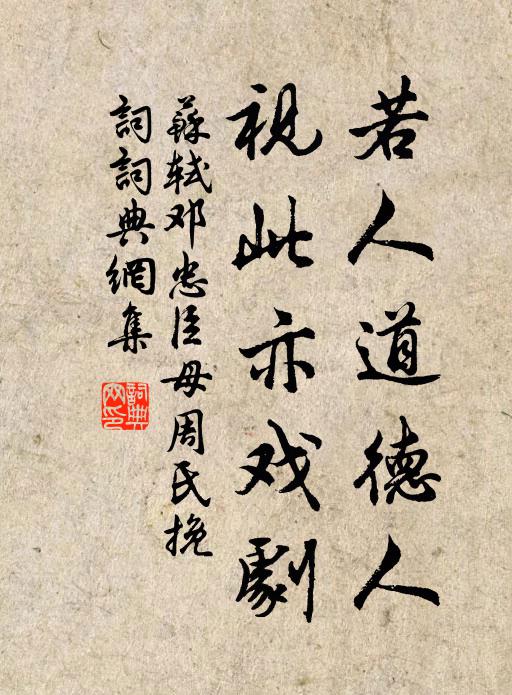 若人道德人
視此亦戏劇
蘇轼邓忠臣母周氏挽
詞詞典網集
詞典
网印